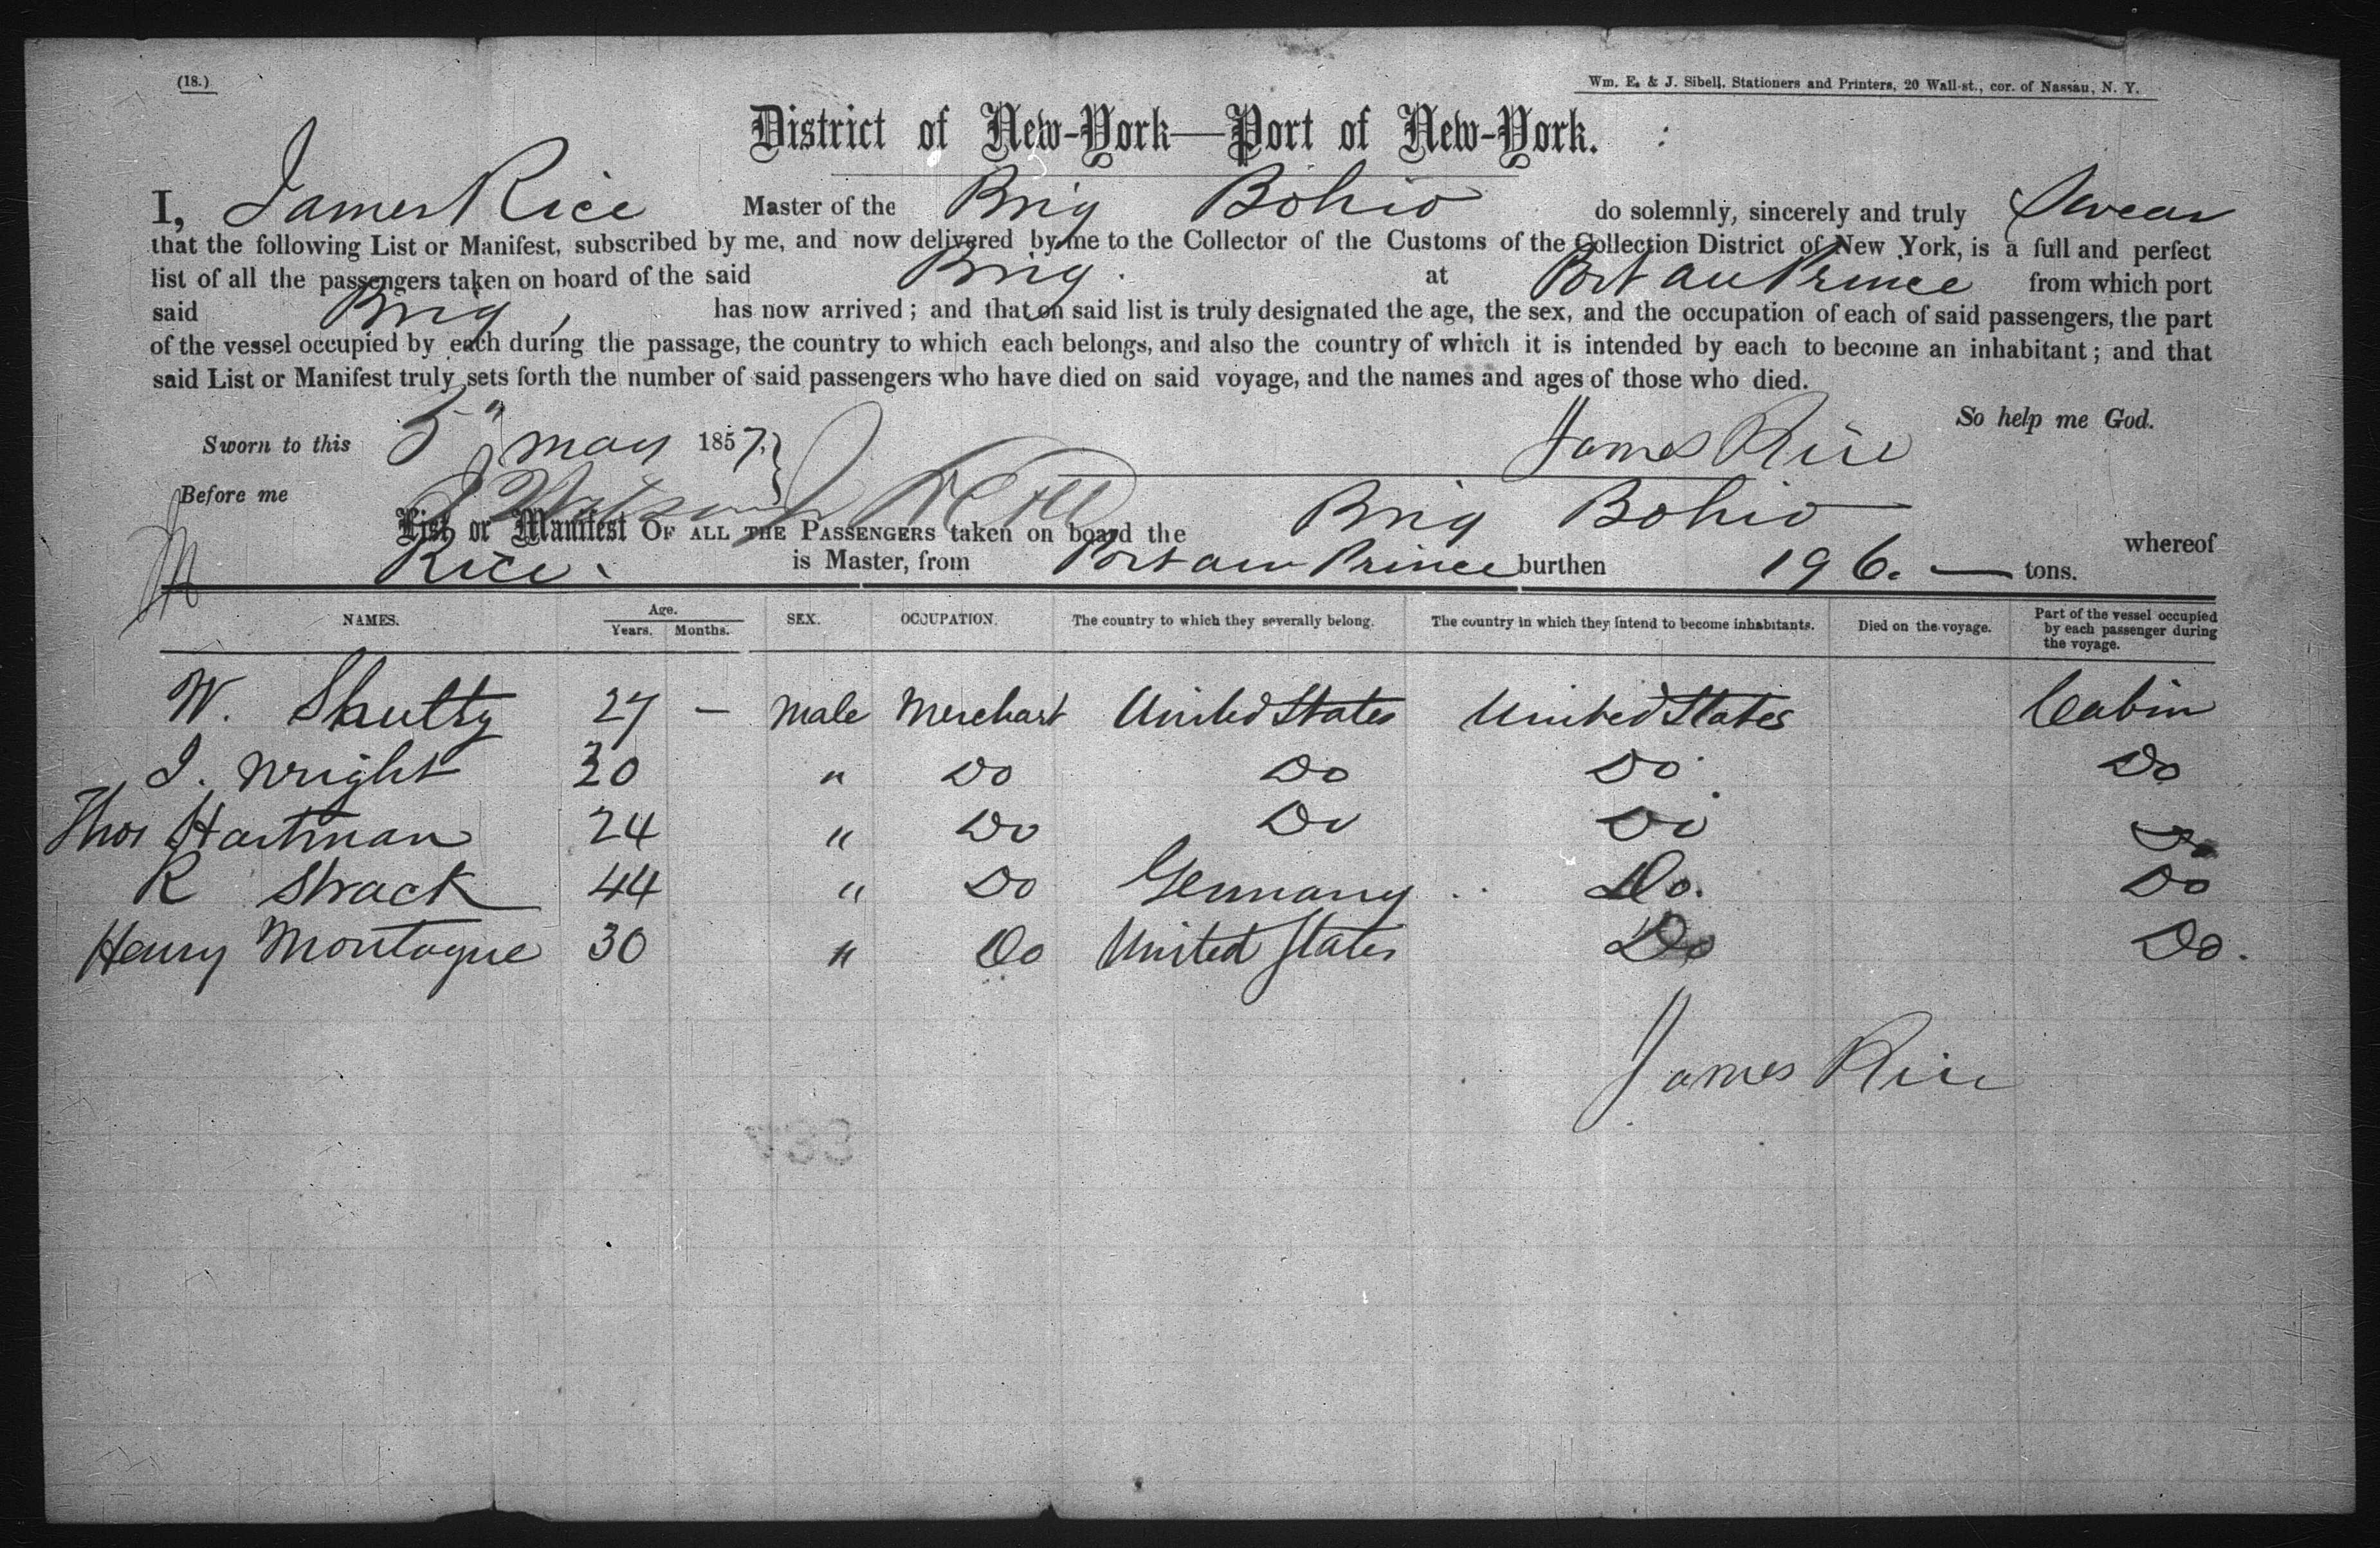 (18.)
Wm. E. & J. Sibell, Stationers and Printers, 20 Wall-st., cor. of Nassau, N. Y.
District of New-York—Port of New-York.
I, James Rice Master of the Brig Bohio do solemnly, sincerely and truly Swear
that the following List or Manifest, subscribed by me, and now delivered by me to the Collector of the Customs of the Collection District of New York, is a full and perfect
list of all the passengers taken on board of the said Brig. at Port au Prince from which port
said Brig, has now arrived; and that on said list is truly designated the age, the sex, and the occupation of each of said passengers, the part
of the vessel occupied by each during the passage, the country to which each belongs, and also the country of which it is intended by each to become an inhabitant; and that
said List or Manifest truly sets forth the number of said passengers who have died on said voyage, and the names and ages of those who died.
So help me God.
Sworn to this 5" May 1857. James Rice
Before me
List or Manifest OF ALL THE PASSENGERS taken on board the Brig Bohio whereof
Rice. is Master, from Port au Prince burthen 196. — tons.
NAMES. Age. Years. Months. SEX. OCCUPATION. The country to which they severally belong. The country in which they intend to become inhabitants. Died on the voyage. Part of the vessel occupied by each passenger during the voyage.
W. Shultz 27 — Male Merchant United States United States Cabin
J. Wright 30 " Do Do Do Do
Thos Hartman 24 " Do Do Do Do
R Strack 44 " Do Germany Do. Do
Henry Montague 30 " Do United States Do Do.
James Rice